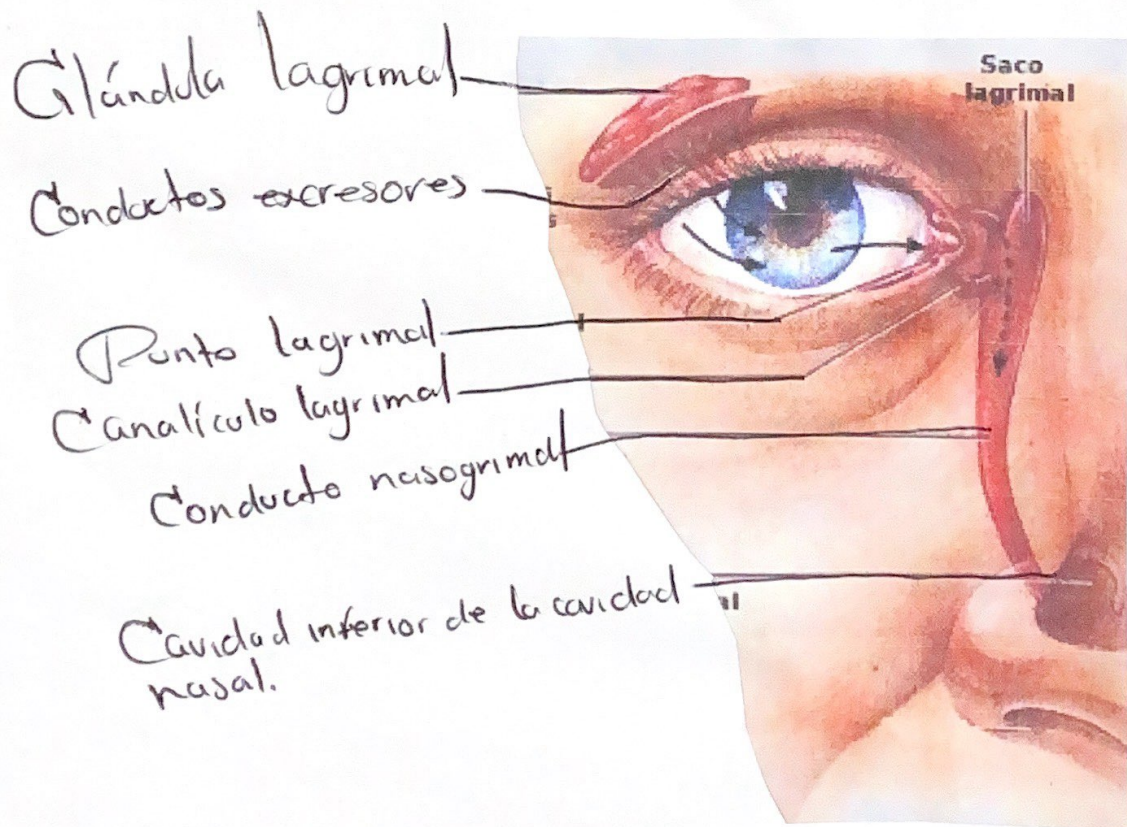 Glándula lagrimal
Saco
lagrimal
Conductos excresores
s
Punto lagrimal
Canalículo lagrimal
Conducto nasogrimal
Cavidad inferior de la cavidad
al
nasal.